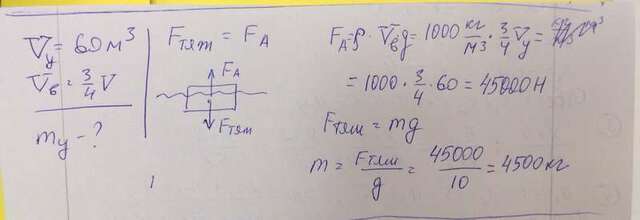 Vу = 60 м³
Vв = 3/4 V
mу - ?
Fтяж = FА
FА
Fтяж
1
FА = ρ · Vв g = 1000 кг/м3 · 3/4 Vу =
= 1000 · 3/4 · 60 = 45000 Н
Fтяж = mg
m = Fтяж/g = 45000/10 = 4500 кг